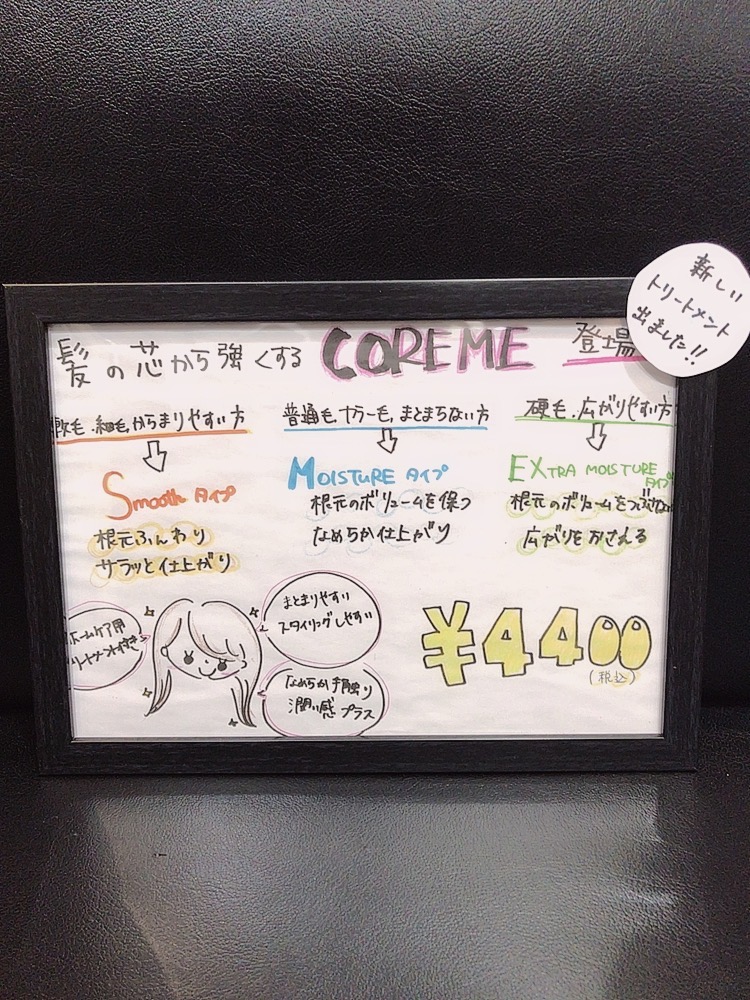 新しい
トリートメント
出ました!!
髪の芯から強くする COREME 登場
軟毛.細毛.からまりやすい方
Smooth タイプ
根元ふんわり
サラッと仕上がり
普通毛.カラー毛.まとまらない方
MOISTURE タイプ
根元のボリュームを保つ
なめらか仕上がり
硬毛.広がりやすい方
EXTRA MOISTURE
タイプ
根元のボリュームをつぶさない
広がりをおさえる
ホームケア用
トリートメント付き
まとまりやすい
スタイリングしやすい
なめらか手触り
潤い感プラス
¥4400
(税込)